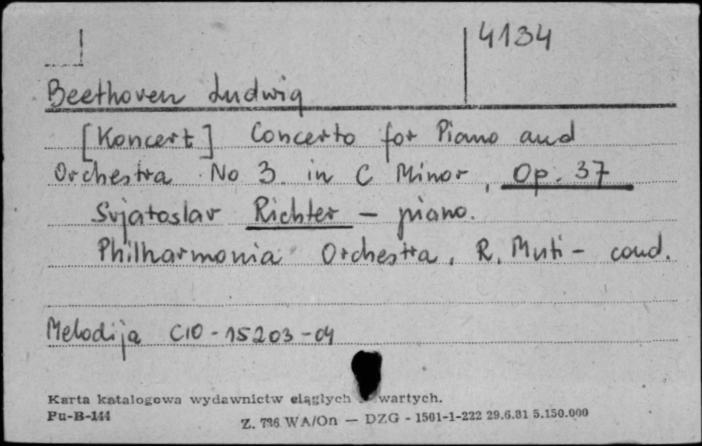 4134
Beethoven Ludwig
[Koncert] Concerto for Piano and
Orchestra No 3. in C Minor, Op. 37
Svjatoslav Richter – piano.
Philharmonia Orchestra, R. Muti – cond.
Melodija C10-15203-04
Karta katalogowa wydawnictw ciągłych zwartych.
Pu-B-144
Z. 736 WA/On — DZG - 1501-1-222 29.6.81 5.150.000